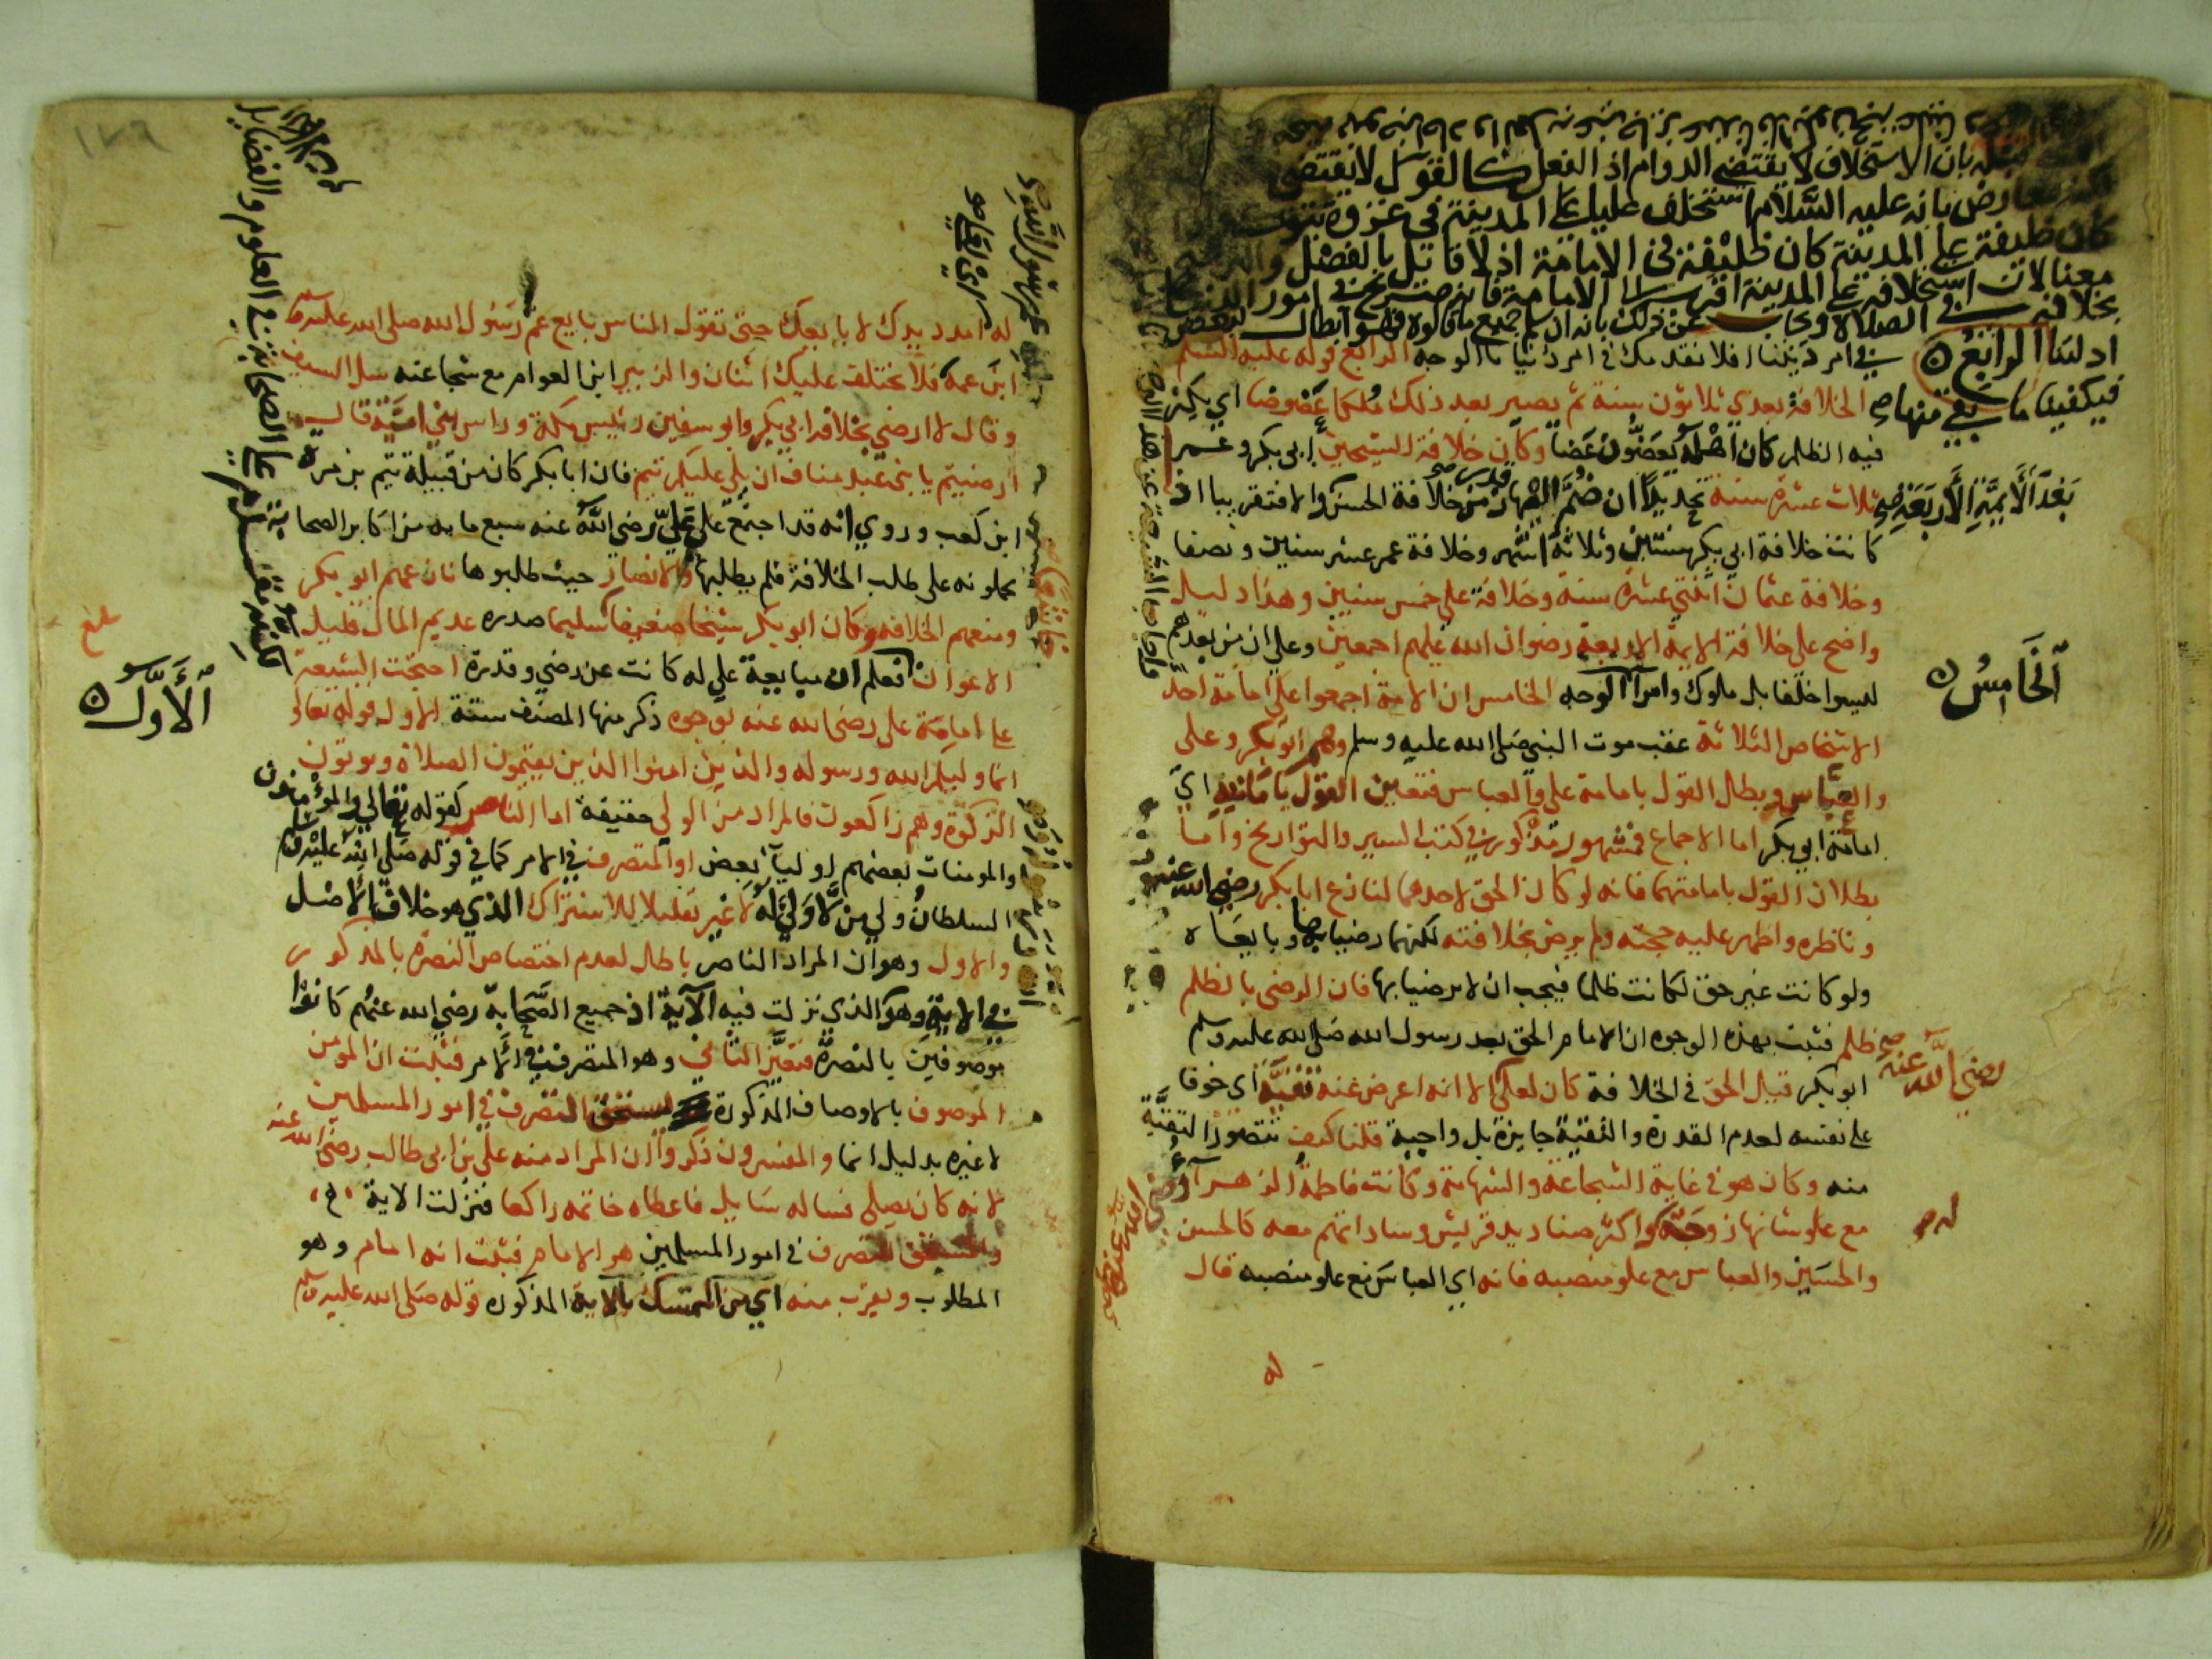 بان الاستخلاف لا يقتضي الدوام اذ الفعل كالقول لا يقتضي
بانه عليه السلام استخلف عليا على المدينة في غزوة تبوك
كان خليفة على المدينة كان خليفة في الامامة اذ لا قائل بالفصل
معنا لان استخلافه على المدينة اقرب الى الامامة
بخلافه في الصلاة وجاب عن ذلك بانه ان سلم جميع ما قالوه فهو ابطال لبعض
ادلتنا الرابع
فيكفينا ما بقي منها صح
في امر ديننا افلا نقدمك في امر دنيانا الوجه الرابع قوله عليه السلم
الخلافة بعدي ثلاثون سنة ثم يصير بعد ذلك ملكا عضوضا اي يكثر
فيه الظلم كان اهله يعضون عضا وكان خلافة الشيخين ابي بكر وعمر
ثلاث عشرة سنة تحديدا ان ضم اليها مدة خلافة الحسن والا فتقريبا اذ
بعد الايمة الاربعة صح
كانت خلافة ابي بكر سنتين وثلاثة اشهر وخلافة عمر عشر سنين ونصفا
وخلافة عثمان اثنتي عشرة سنة وخلافة علي خمس سنين وهذا دليل
واضح على خلافة الايمة الاربعة رضوان الله عليهم اجمعين وعلى ان من بعدهم
ليسوا خلفا بل ملوك وامرآ الوجه الخامس ان الامة اجمعوا على امامة احد
الخامس
الاشخاص الثلاثة عقب موت النبي صلى الله عليه وسلم وهم ابو بكر وعلي
والعباس وبطل القول بامامة علي والعباس فتعين القول بامامته اي
امامة ابي بكر اما الاجماع فمشهور مذكور في كتب السير والتواريخ واما
بطلان القول بامامتهما فانه لو كان الحق لاحدهما لنازع ابا بكر رضي الله عنه
وناظره واظهر عليه حجته ولم يرض بخلافته لكنهما رضيا بها وبايعاه
ولو كانت غير حق لكانت ظلما فيجب ان لا يرضيا بها فان الرضى بالظلم
ظلم فثبت بهذه الوجوه ان الامام الحق بعد رسول الله صلى الله عليه وسلم
ابو بكر قيل الحق في الخلافة كان لعلي الا انه اعرض عنه تقية اي خوفا
رضي الله عنه صح
على نفسه لعدم القدرة والتقية جايزة بل واجبة قلنا كيف تتصور التقية
منه وكان هو في غاية الشجاعة والشهامة وكانت فاطمة الزهرآ
مع علو شانها زوجة له واكثر صناديد قريش وساداتهم معه كالحسن
والحسين والعباس مع علو منصبه فانه اي العباس مع علو منصبه قال
له
١٧٦
له امدد يدك لابايعك حتى تقول الناس بايع عم رسول الله صلى الله عليه وسلم
ابن عمه فلا يختلف عليك اثنان والزبير ابن العوام مع شجاعته سل السيف
وقال لا ارضى بخلافة ابي بكر وابو سفين رئيس مكة وراس بني امية قال
ارضيتم يا بني عبد مناف ان يلي عليكم تيم فان ابا بكر كان من قبيلة تيم بن مرة
ابن كعب وروي انه قد اجتمع على علي رضي الله عنه سبع مايه من اكابر الصحابة
يحملونه على طلب الخلافة فلم يطلبها والانصار حيث طلبوها نازعهم ابو بكر
ومنعهم الخلافه وكان ابو بكر شيخا ضعيفا سليما صدره عديم المال قليل
الاعوان فعلم ان مبايعة علي له كانت عن رضي وقدرة احتجت الشيعة
على امامة علي رضي الله عنه بوجوه ذكر منها المصنف ستة الاول قوله تعالى
الاول
انما وليكم الله ورسوله والذين امنوا الذين يقيمون الصلاة ويوتون
الزكوة وهم راكعون فالمراد من الولي حقيقة اما الناصر كقوله تعالى والمؤمنون
والمومنات بعضهم اوليآ بعض او المتصرف في الامر كما في قوله صلى الله عليه وسلم
السلطان ولي من لا ولي له لا غير تقليلا للاشتراك الذي هو خلاف الاصل
والاول وهو ان المراد الناصر باطل لعدم اختصاص النصرة بالمذكور
في الاية وهو الذي نزلت فيه الآية اذ جميع الصحابة رضي الله عنهم كانوا
موصوفين بالنصرة فتعين الثاني وهو المتصرف في الامر فثبت ان المومن
الموصوف بالاوصاف المذكورة يستحق التصرف في امور المسلمين
لا غيره بدليل انما والمفسرون ذكروا ان المراد منه علي بن ابي طالب رضي الله عنه
لانه كان يصلي فساله سايل فاعطاه خاتمه راكعا فنزلت الاية
والمستحق للتصرف في امور المسلمين هو الامام فثبت انه امام وهو
المطلوب ويقرب منه اي من التمسك بالاية المذكورة قوله صلى الله عليه وسلم